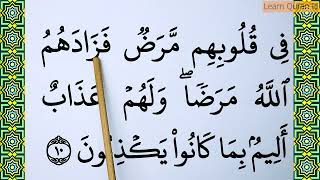 Learn Quran id
فِى قُلُوبِهِم مَّرَضٌ فَزَادَهُمُ
ٱللَّهُ مَرَضًاۖ وَلَهُمۡ عَذَابٌ
أَلِيمُۢ بِمَا كَانُوا۟ يَكۡذِبُونَ ١٠